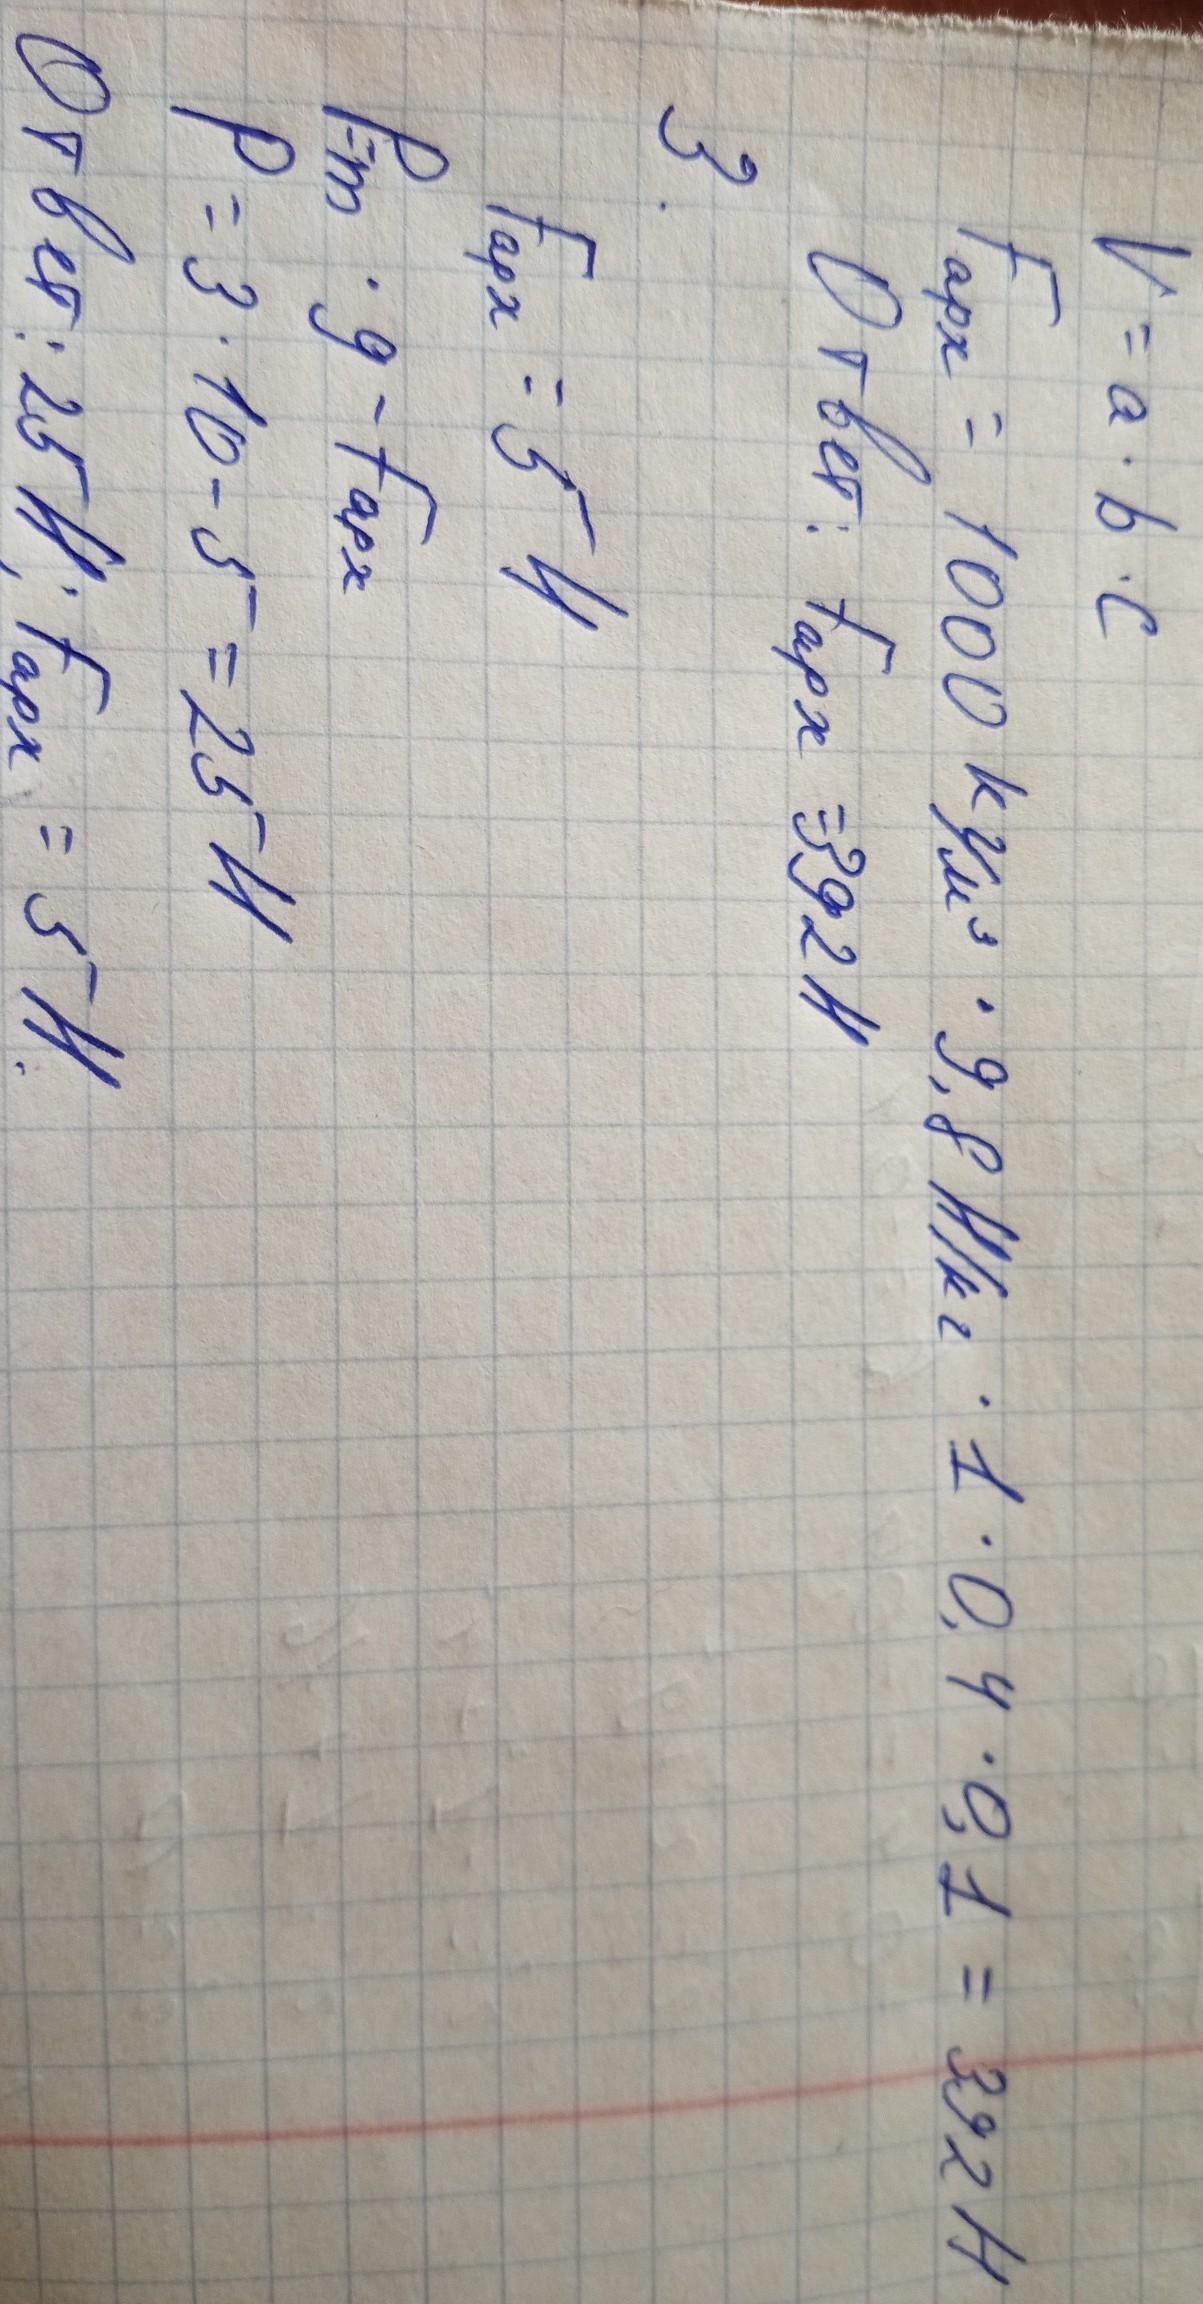 V = a · b · c
Fарх = 1000 кг/м³ · 9,8 Н/кг · 1 · 0,4 · 0,1 = 392 Н
Ответ: Fарх = 392 Н
3.
Fарх = 5 Н
P=m · g - Fарх
P = 3 · 10 - 5 = 25 Н
Ответ: 25 Н; Fарх = 5 Н.